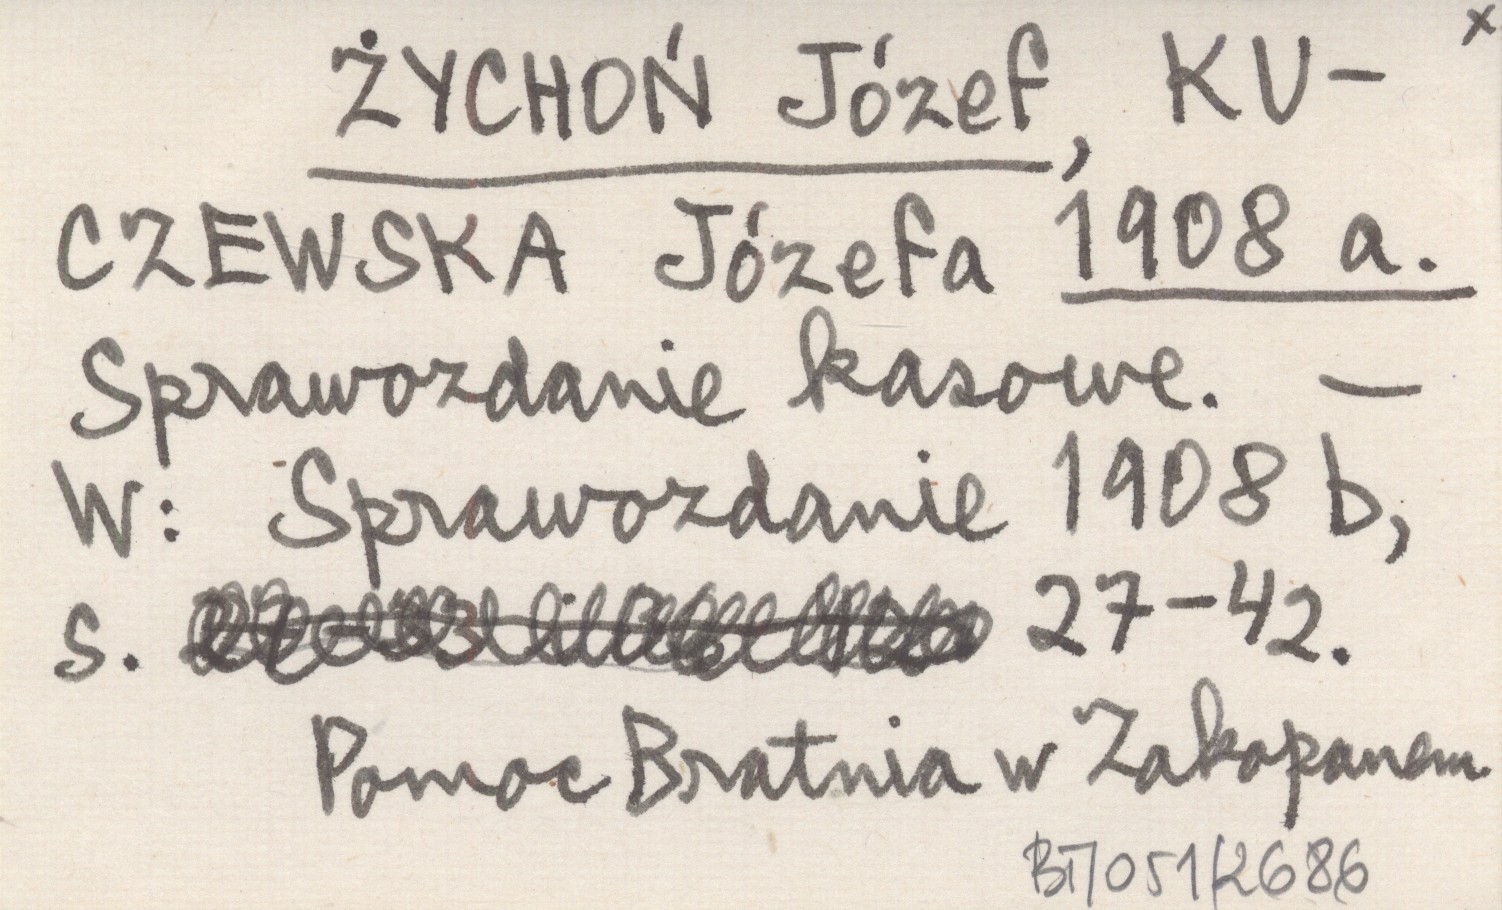 x
ŻYCHOŃ Józef, KU-
CZEWSKA Józefa 1908 a.
Sprawozdanie kasowe. —
W: Sprawozdanie 1908 b,
s. 27-42.
Pomoc Bratnia w Zakopanem.
BT/051/2686